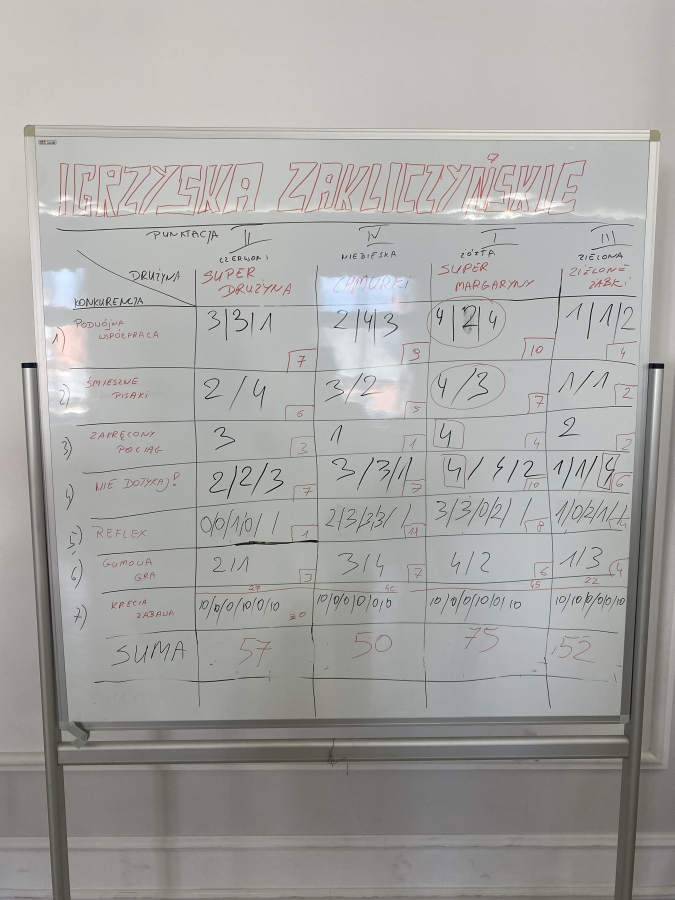 IGRZYSKA ZAKLICZYŃSKIE
PUNKTACJA II IV I III
CZERWONI NIEBIESKA ŻÓŁTA ZIELONA
DRUŻYNA SUPER DRUŻYNA CHMURKI SUPER MARGARYNY ZIELONE ŻABKI
KONKURENCJA
1) PODWÓJNA WSPÓŁPRACA 3/3/1 7 2/4/3 9 4/2/4 10 1/1/2 4
2) ŚMIESZNE PISAKI 2/4 6 3/2 5 4/3 7 1/1 2
3) ZAKRĘCONY POCIĄG 3 3 1 1 4 4 2 2
4) NIE DOTYKAJ! 2/2/3 7 3/3/1 7 4/4/2 10 1/1/4 6
5) REFLEX 0/0/1/0/ / 1 2/3/3/3/ / 11 3/3/0/2/ / 8 1/0/2/1/
6) GUMOWA GRA 2/1 3 3/4 7 4/2 6 1/3 4
27 40 45 22
7) KRECIA ZABAWA 10/0/0/10/0/10 30 10/0/0/0/0/0 10/0/0/10/0/10 10/10/0/0/0/10
SUMA 57 50 75 52